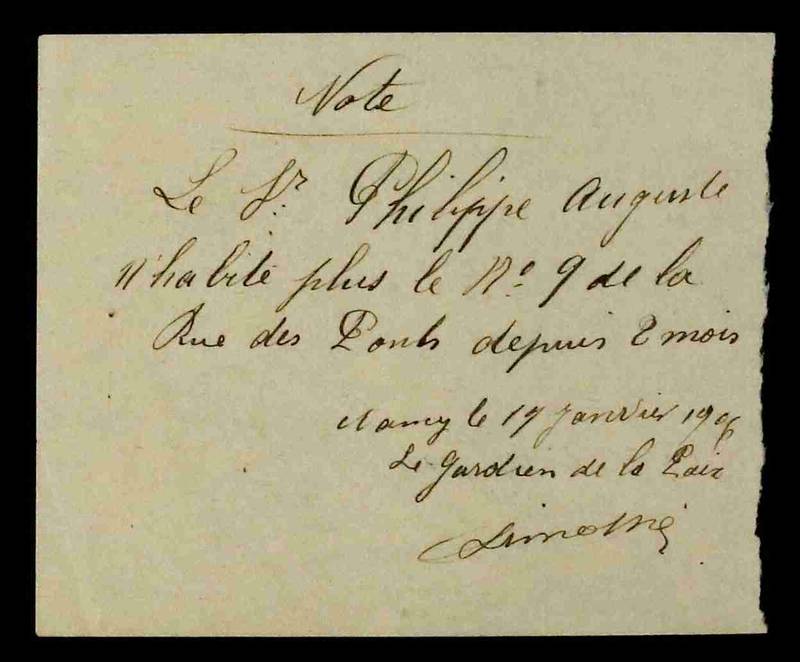 Note
Le Sr. Philippe Auguste
n'habite plus le No. 9 de la
Rue des Ponts depuis 2 mois
Nancy le 19 Janvier 1906
Le Gardien de la Paix